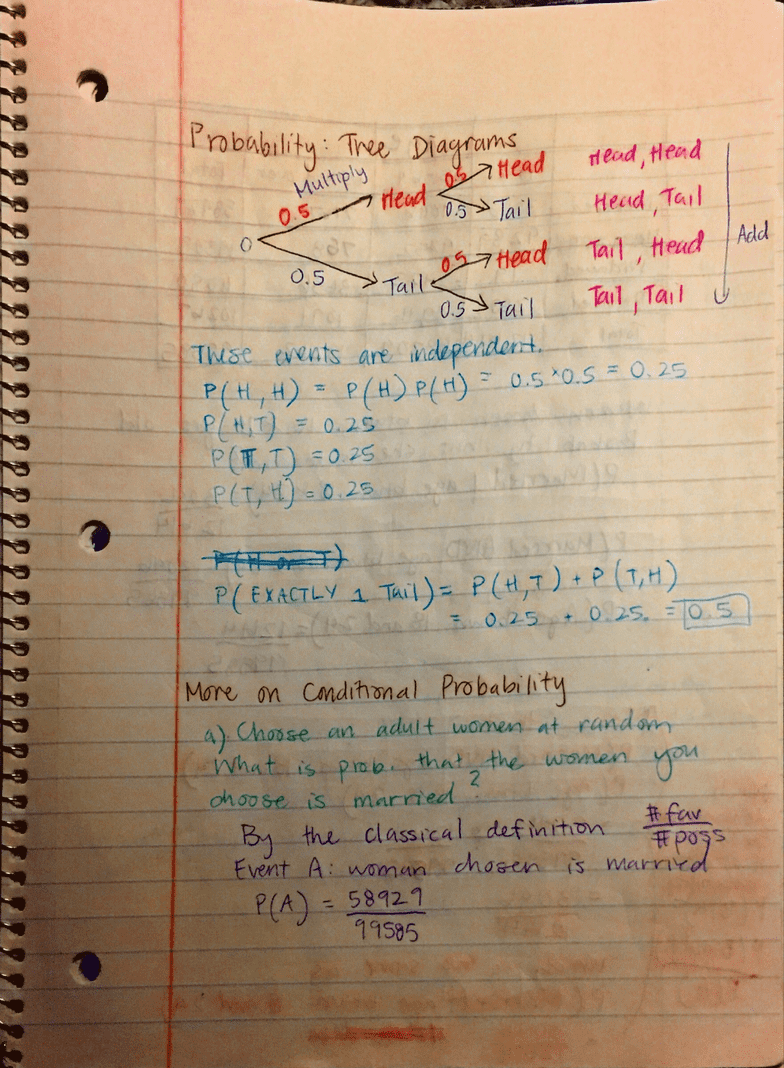 Probability: Tree Diagrams
Multiply
0.5 Head 0.5 Head Head, Head
0.5 Tail Head, Tail
0
0.5 Tail 0.5 Head Tail, Head
0.5 Tail Tail, Tail
Add
These events are independent.
P(H,H) = P(H)P(H) = 0.5 × 0.5 = 0.25
P(H,T) = 0.25
P(T,T) = 0.25
P(T,H) = 0.25
P(H or T)
P(EXACTLY 1 Tail) = P(H,T) + P(T,H)
= 0.25 + 0.25. = 0.5
More on Conditional Probability
a) Choose an adult women at random
What is prob. that the women you
choose is married?
By the classical definition #fav/#poss
Event A: woman chosen is married
P(A) = 58929/99585